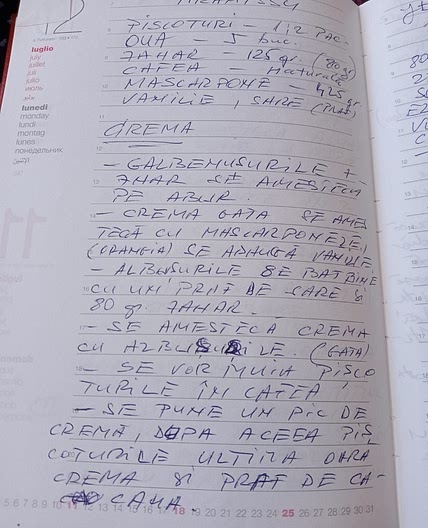 TIRAMISSU
PISCOTURI - 1,2 PAC.
OUA - 5 buc.
ZAHAR - 125 gr. (80 gr)
CAFEA - Naturală
MASCARPONE - 425 gr
VANILIE, SARE (PRAF)
CREMA
- GALBENUSURILE +
ZAHAR SE AMESTECĂ
PE ABUR.
- CREMA GATA SE AMES
TECA CU MASCARPONELE,
SE ADAUGĂ VANILIE.
- ALBUSURILE SE BAT BINE
CU UN PRAF DE SARE ȘI
80 gr. ZAHAR.
- SE AMESTECA CREMA
CU ALBUSURILE. (GATA)
- SE VOR MUIA PISCO
TURILE ÎN CAFEA,
- SE PUNE UN PIC DE
CREMĂ, DUPA ACEEA PIS,
COTURILE ULTIMA OARA
CREMA SI PRAF DE CA-
CAUA.
12
luglio
july
juillet
juli
julio
июль
lunedi
monday
lundi
montag
lunes
понедельник
5 6 7 8 9 10 11 12 13 14 15 16 17 18 19 20 21 22 23 24 25 26 27 28 29 30 31